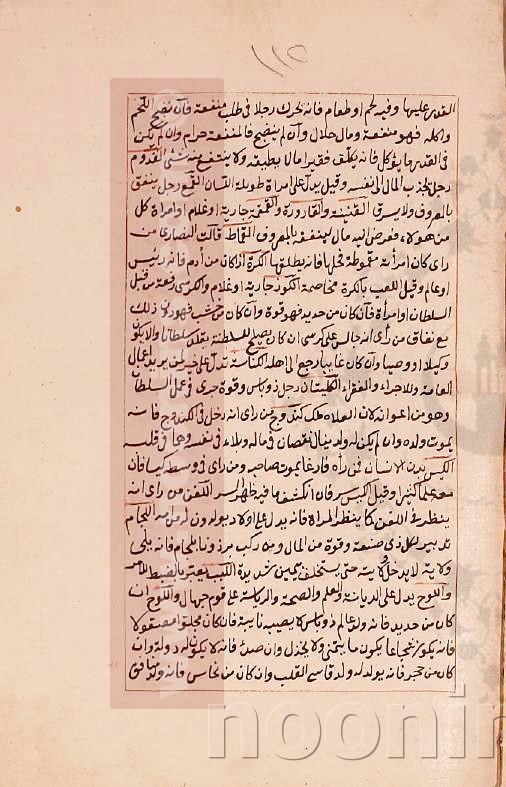 ١١٥
القدر عليها وفيه لحم او طعام فانه يحرك رجلا فى طلب منفعة فان نضج اللحم
واكله فهو منفعة ومال حلال وان لم ينضج فالمنفعة حرام وان لم يكن
فى القدر ما يؤكل فانه يكلف فقيرا مالا يطيقه ولا ينتفع منه بشئ القدوم
رجل يجذب المال الى نفسه وقيل يدل على امراة طويلة اللسان القمع رجل ينفق
بالمعروف ولا يسرق القنينة والقارورة والقمقمة جارية او غلام او امراة كل
من هولاء فعرض اليه مال لينفقه بالمعروف القماط قالت النصارى من
راى كان امرأته مقموطة نحلها فانه يطلقها الكرة اذا كان من ادم فانه رئيس
او عالم وقيل اللعب بالكرة مخاصمة الكوز جارية او غلام والكرسى رفعة من قبل
السلطان او امرأة فان كان من حديد فهو قوة وان كان من خشب فهو دون ذلك
مع نفاق من رأى انه جالس على كرسى ان كان يصلح للسلطنة يقلد سلطانا والا يكون
وكيلا او وصيا وان كان غايبا رجع الى اهله الكناسة تدل على خير لمن يريد اعمال
العامة وللاجراء والفقراء الكلبتان رجل ذو باس وقوة جرى فى عمل السلطان
وهو من اعوانه لان الملاه ملك كندوج من راى انه دخل فى الكندوج فانه
يموت ولده وان لم يكن له ولد ينال نقصان فى ماله وبلاء فى نفسه وهما فى قلبه
الكيس بدن الانسان فمن رأه فارغا يموت صاحبه ومن راى فى وسطه كيسا فان
معه علما كثيرا وقيل الكيس سر فان انكشف ما فيه ظهر السر اللقن من راى انه
ينظر فى اللقن كما ينظر المرآة فانه يدل على اولاد يولدون له من امه اللجام
تدبير لكل ذى صنعة وقوة من المال ومن ركب برذونا بلجام فانه يلى
ولاية لا يدخل ولايته حتى يستحلف بيمين شديدة اللبب يعبر بالضبط للامر
واللوح يدل على الديانة والعلم والصحة والرياسة على قوم جهال واللوح ان
كان من حديد فانه ولد عالم ذو باس لا يصيبه نايبة فان كان مجلوا مصقولا
فانه يكون شجاعا يكون ما يتمنى ولا يخذل وان صدئ فانه لا يكون له دولة وان
كان من حجر فانه يولد له ولد قاسى القلب وان كان من نحاس فانه ولد منافق
noonir